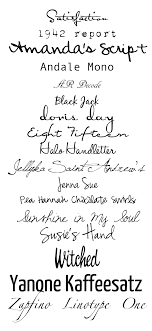 Satisfaction
1942 report
Amanda's Script
Andale Mono
A.R. Decode
Black Jack
doris day
Eight Fifteen
Halo Handletter
Jellyka Saint Andrew's
Jenna Sue
Pea Hannah Chocolate Swirls
Sunshine in My Soul
Susie's Hand
Witched
Yanone Kaffeesatz
Zapfino Linotype One